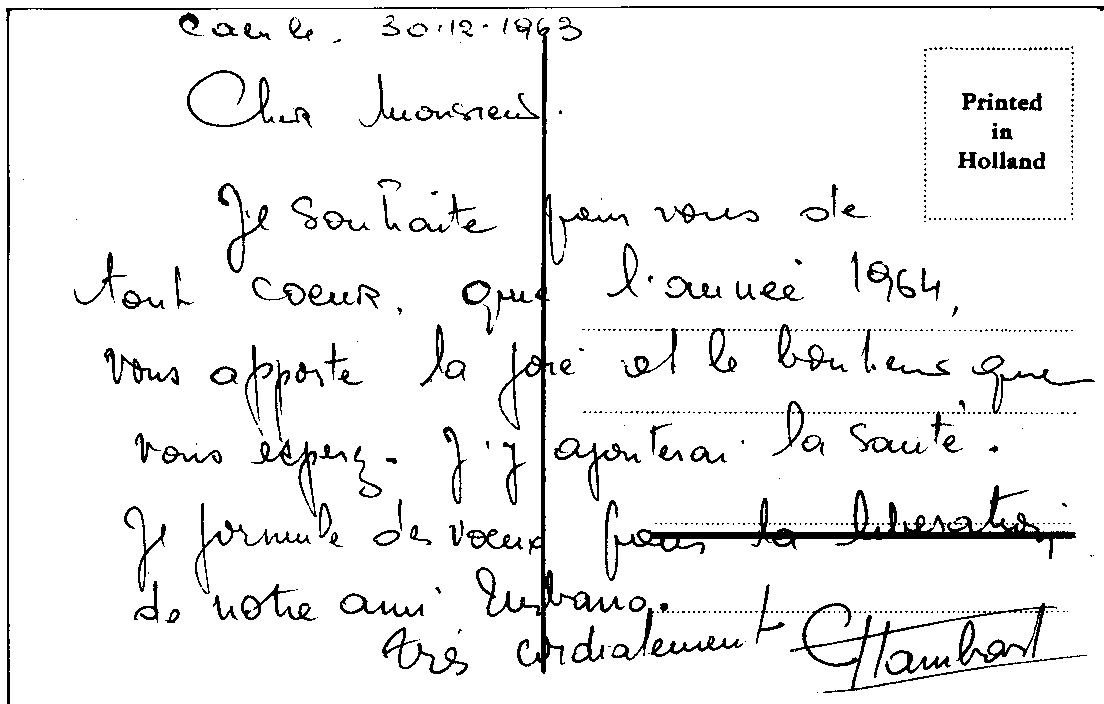 Caen le. 30.12.1963
Cher Monsieur.
Printed
in
Holland
Je souhaite pour vous de
tout coeur, que l'année 1964,
vous apporte la joie et le bonheur que
vous éspérez. J'y ajouterai la santé.
Je formule des voeux pour la libération
de notre ami Urbano.
très cordialement